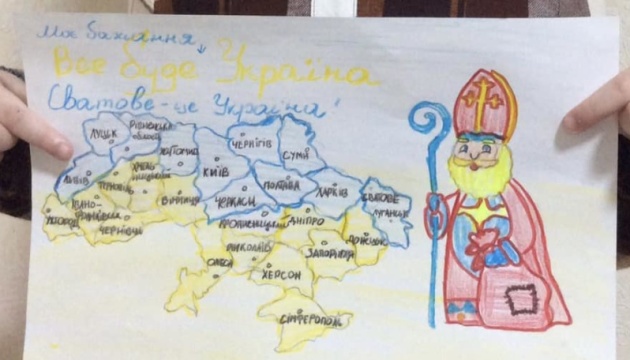 Моє бажання,
Все буде Україна
Сватове - це Україна!
ЛУЦЬК
РІВНЕНСЬКА
ЖИТОМИР
ЧЕРНІГІВ
СУМИ
КИЇВ
ЛЬВІВ
ТЕРНОПІЛЬ
ХМЕЛЬ-
НИЦЬКИЙ
ПОЛТАВА
ХАРКІВ
СВАТОВЕ
ЛУГАНСЬК
ІВАНО-
ФРАНКІВСЬК
ВІННИЦЯ
ЧЕРКАСИ
УЖГОРОД
ЧЕРНІВЦІ
КРОПИВНИЦЬКИЙ
ДНІПРО
ДОНЕЦЬК
МИКОЛАЇВ
ЗАПОРІЖЖЯ
ОДЕСА
ХЕРСОН
СІМФЕРОПОЛЬ